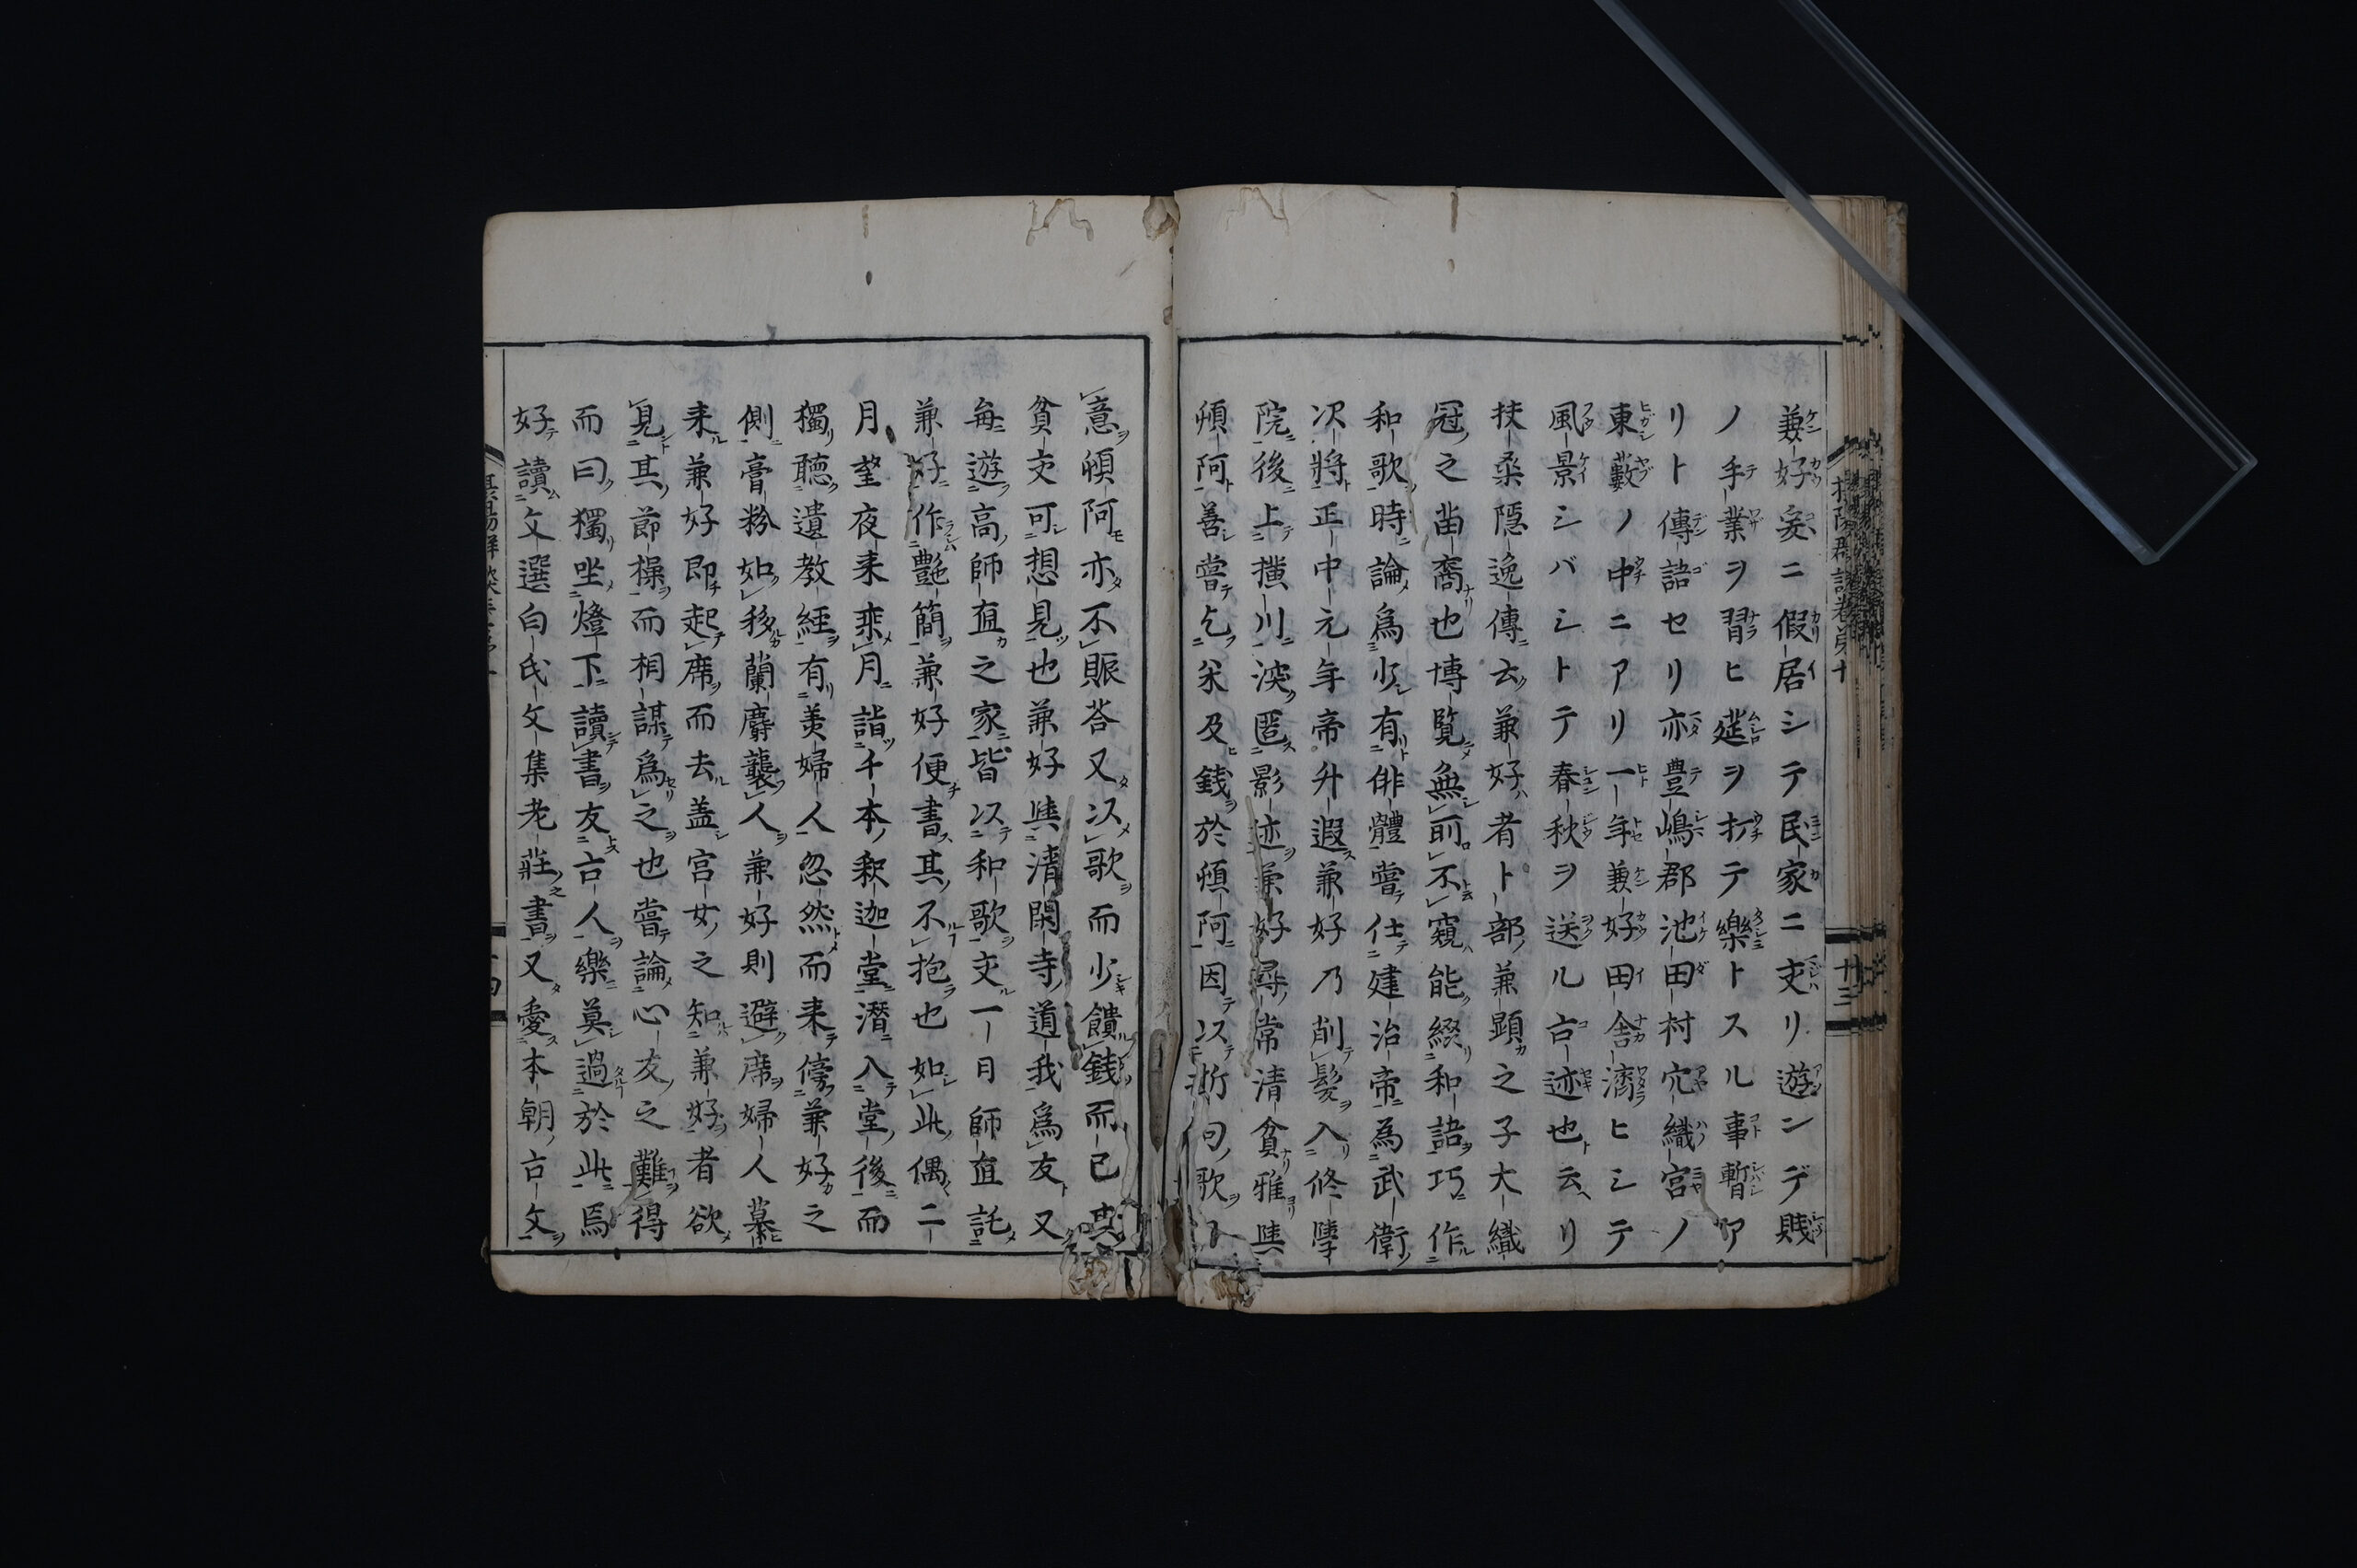 兼好爰ニ假居シテ民家ニ交リ遊ンデ賤
ノ手業ヲ習ヒ莚ヲ打テ樂トスル事暫ア
リト傳語セリ亦豊嶋郡池田村穴織宮ノ
東藪ノ中ニアリ一年兼好田舎濟ヒシテ
風景シバシトテ春秋ヲ送ル古迹也云リ
扶桑隠逸傳云兼好者卜部兼顕之子大織
冠之苗裔也博覧無前不窺能綴和語巧作
和歌時論為少有俳體嘗仕建治帝為武衛
次將正中元年帝升遐兼好乃削髪入修學
院後上横川泱匿影迹兼好尋常清貧雅與
頓阿善嘗乞米及錢於頓阿因以折句歌
意頓阿亦不賑荅又以歌而少饋錢而已其
貧交可想見也兼好與清閑寺道我為友又
毎遊高師直之家皆以和歌交一月師直託
兼好作艶簡兼好便書其不抱也如此偶二
月望夜来乗月詣千本釈迦堂潜入堂後而
獨聴遺教經有美婦人忽然而来傍兼好之
側膏粉如移蘭麝襲人兼好則避席婦人慕
来兼好即起席而去盖宮女之知兼好者欲
見其節操而相謀為之也嘗論心友之難得
而曰獨坐燈下讀書友古人樂莫過於此焉
好讀文選白氏文集老荘書又愛本朝古文